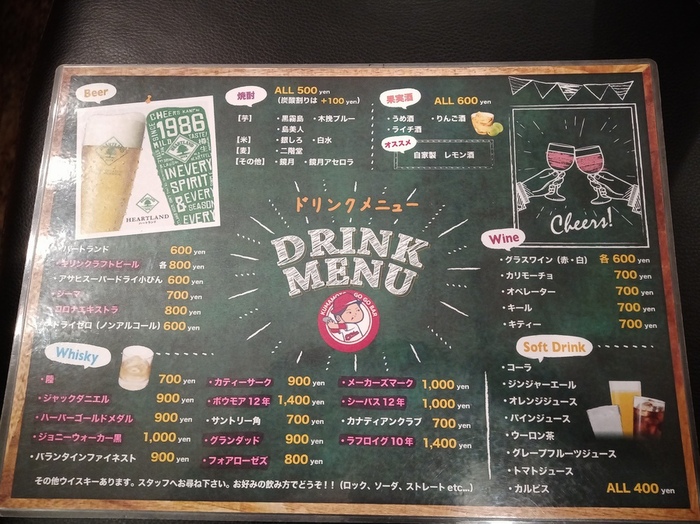 Beer
CHEERS KANPAI
1986
MILD
TASTE!
INEVERY
SPIRIT
& EVERY
SEASON
EVERY
HEARTLAND
ハートランド 600 yen
・キリンクラフトビール 各 800 yen
・アサヒスーパードライ小びん 600 yen
・ジーマ 700 yen
・コロナエキストラ 800 yen
・ドライゼロ（ノンアルコール） 600 yen
焼酎
ALL 500 yen
（炭酸割りは +100 yen）
【芋】 ・黒霧島 ・木挽ブルー
・島美人
【米】 ・銀しろ ・白水
【麦】 ・二階堂
【その他】 ・鏡月 ・鏡月アセロラ
果実酒
ALL 600 yen
・うめ酒 ・りんご酒
・ライチ酒
オススメ
自家製 レモン酒
ドリンクメニュー
DRINK
MENU
GO GO BAR
Cheers!
Wine
・グラスワイン（赤・白） 各 600 yen
・カリモーチョ 700 yen
・オペレーター 700 yen
・キール 700 yen
・キティー 700 yen
Whisky
・陸 700 yen
・ジャックダニエル 900 yen
・ハーパーゴールドメダル 900 yen
・ジョニーウォーカー黒 1,000 yen
・バランタインファイネスト 900 yen
・カティーサーク 900 yen
・ボウモア 12年 1,400 yen
・サントリー角 700 yen
・グランダッド 900 yen
・フォアローゼズ 800 yen
・メーカーズマーク 1,000 yen
・シーバス 12年 1,000 yen
・カナディアンクラブ 700 yen
・ラフロイグ 10年 1,400 yen
その他ウイスキーあります。スタッフへお尋ね下さい。お好みの飲み方でどうぞ！！（ロック、ソーダ、ストレート etc...）
Soft Drink
・コーラ
・ジンジャーエール
・オレンジジュース
・パインジュース
・ウーロン茶
・グレープフルーツジュース
・トマトジュース
・カルピス ALL 400 yen